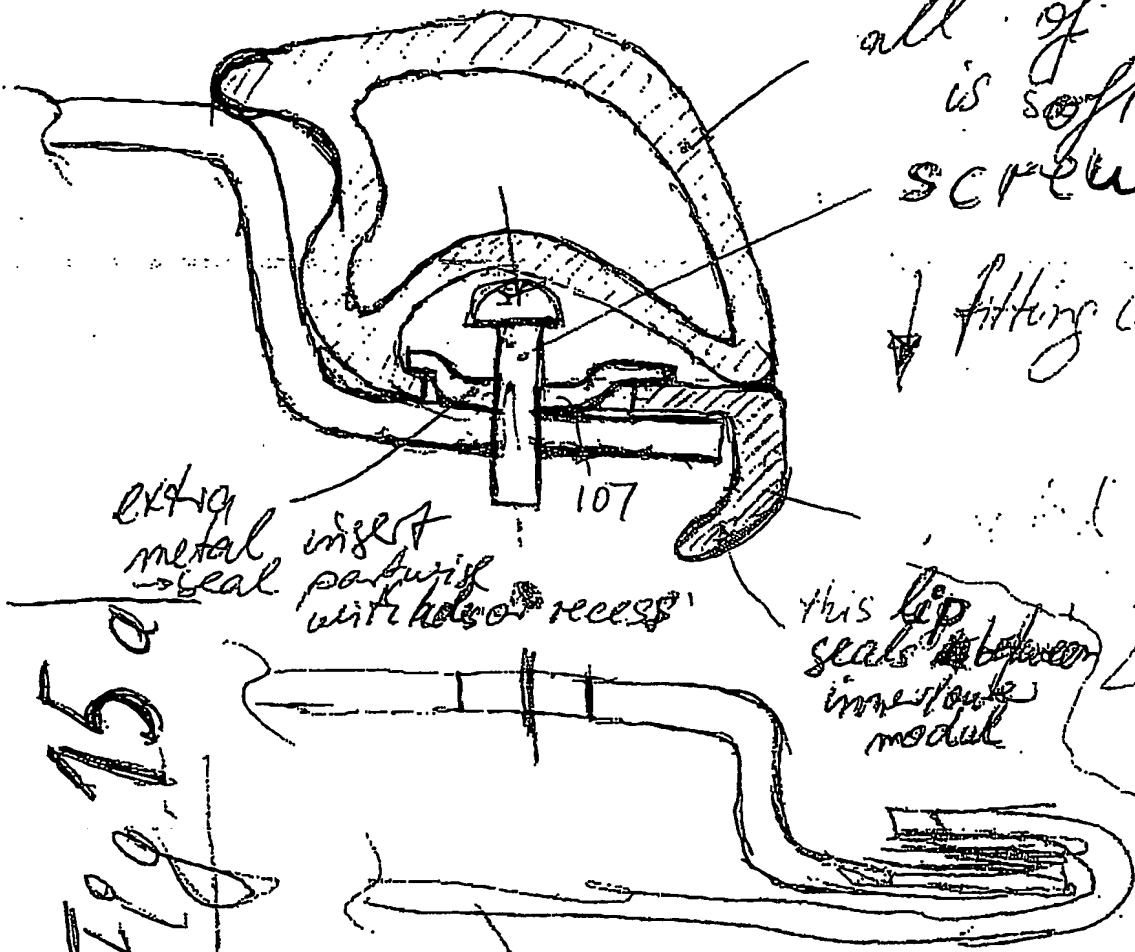 all of
is soft
screw
fitting
107
extra
metal insert
→ seal partwise
with recess
this lip
seals between
inner/outer
modul
Fig. 15 a